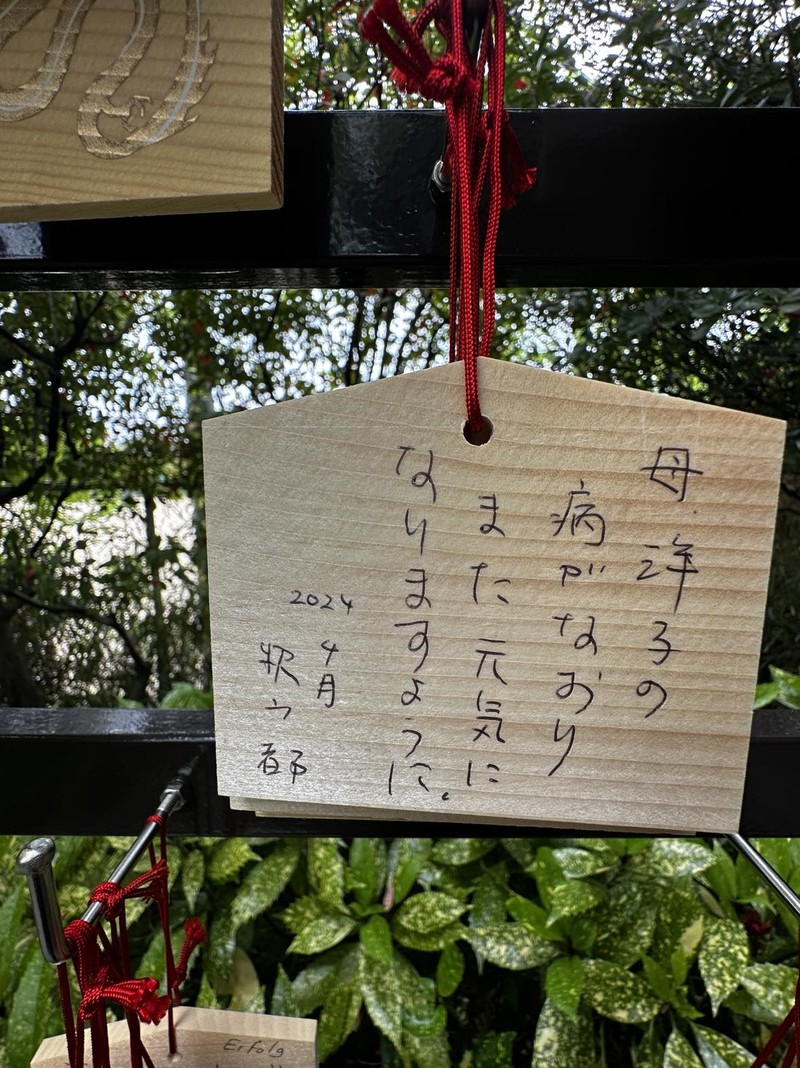 母 洋子の
病がなおり
また元気に
なりますように。
2024
4月
Erfolg